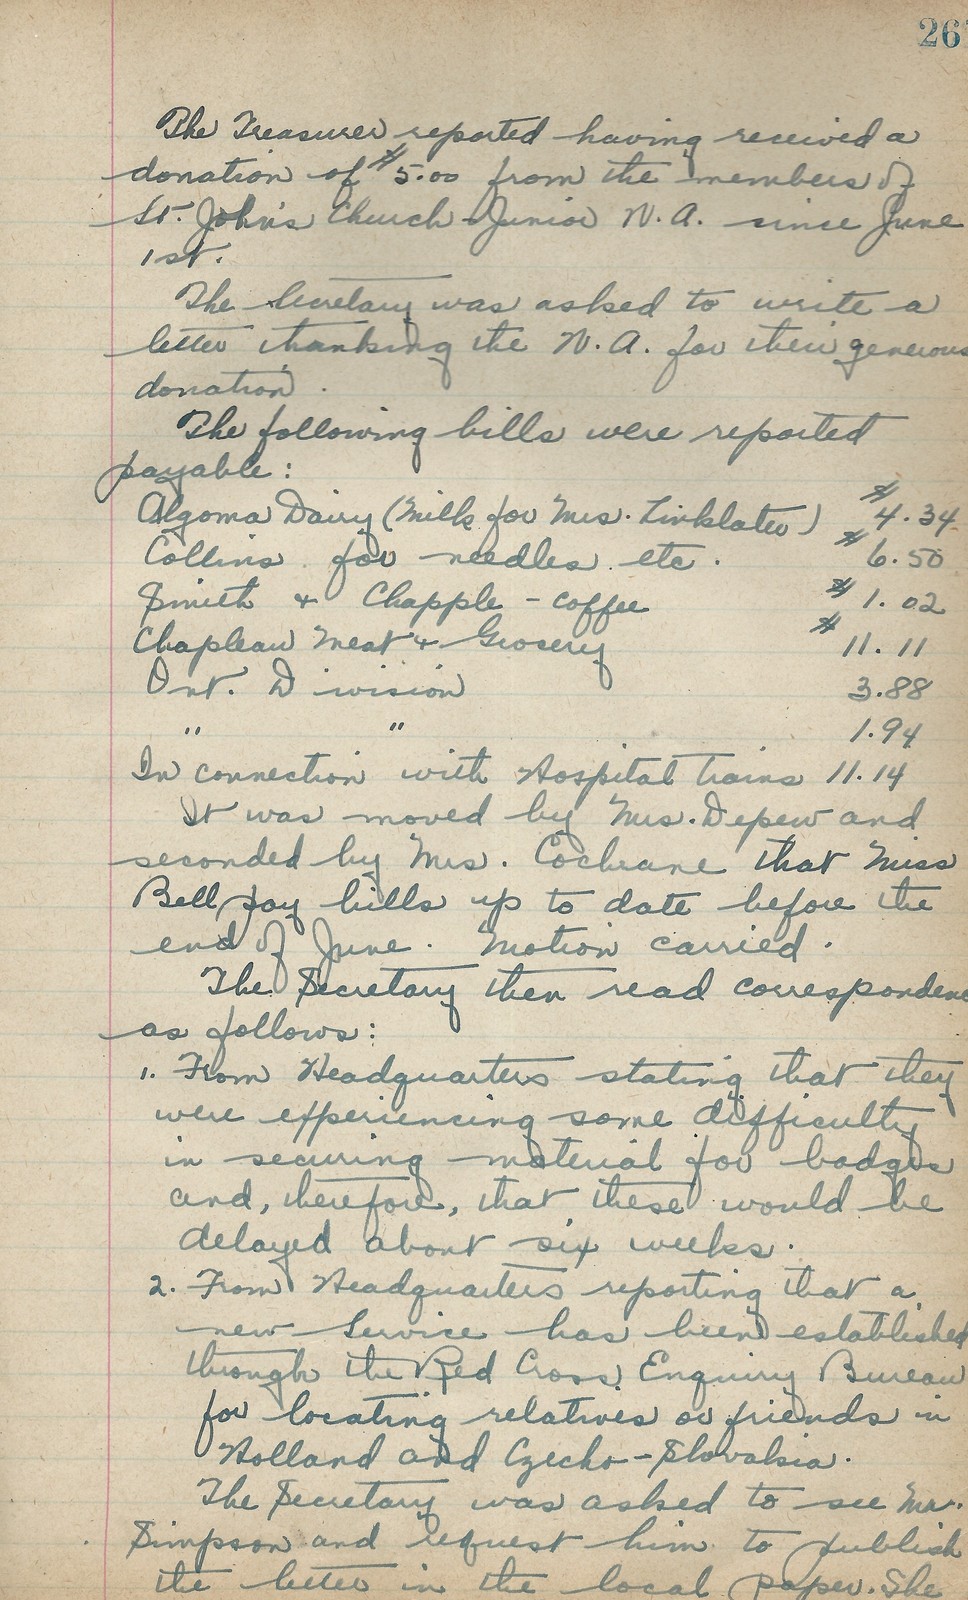 267
The Treasurer reported having received a
donation of $5.00 from the members of
St. John's Church Junior W. A. since June
1st.
The Secretary was asked to write a
letter thanking the W. A. for their generous
donation.
The following bills were reported
payable:
Algoma Dairy (Milk for Mrs. Linklater) $4.34
Collins for needles etc. $6.50
Smith & Chapple - coffee $1.02
Chapleau Meat & Grocery $11.11
Ont. Division 3.88
" " 1.94
In connection with Hospital trains 11.14
It was moved by Mrs. Depew and
seconded by Mrs. Cochrane that Miss
Bell pay bills up to date before the
end of June. Motion carried.
The Secretary then read correspondence
as follows:
1. From Headquarters stating that they
were experiencing some difficulty
in securing material for badges
and, therefore, that these would be
delayed about six weeks.
2. From Headquarters reporting that a
new service has been established
through the Red Cross Enquiry Bureau
for locating relatives or friends in
Holland and Czecho-Slovakia.
The Secretary was asked to see Mr.
Simpson and request him to publish
the letter in the local paper. She